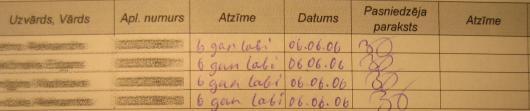 Uzvārds, Vārds Apl. numurs Atzīme Datums Pasniedzēja paraksts Atzīme
6 gan labi 06.06.06
6 gan labi 06.06.06
6 gan labi 06.06.06
6 gan labi 06.06.06